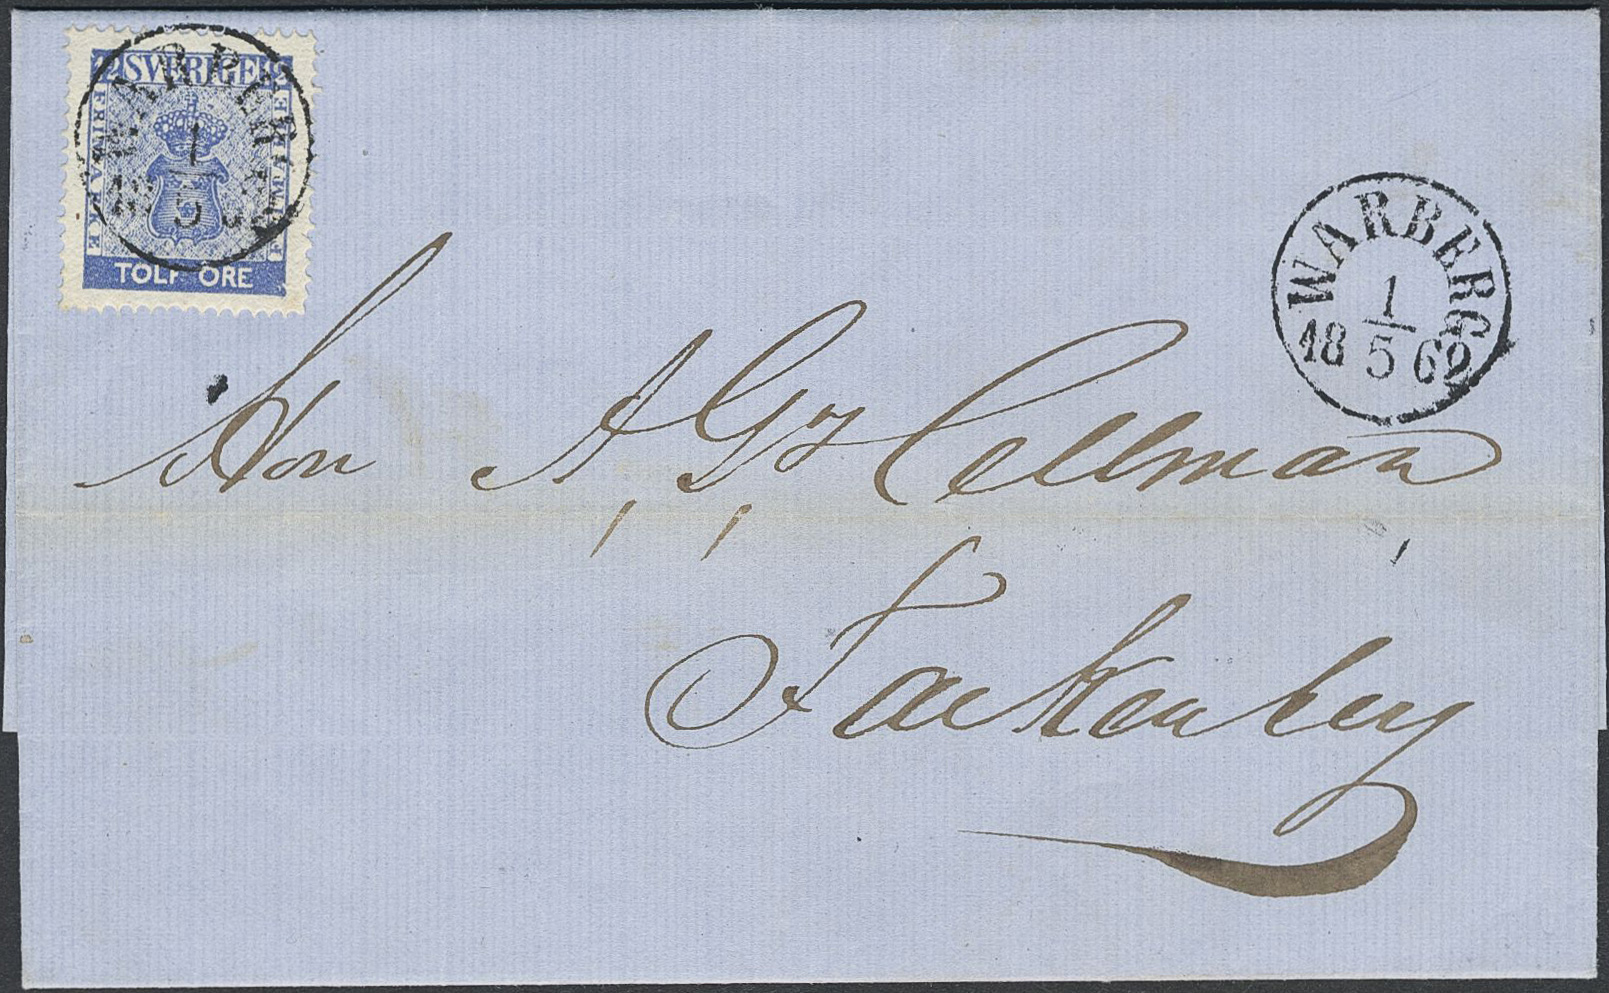 12 SVERIGE 12
FRIMÄRKE
FRIMÄRKE
TOLF ÖRE
WARBERG
1
5
WARBERG
1
18 5 62
Hrn A, G, Hellman
Falkenberg